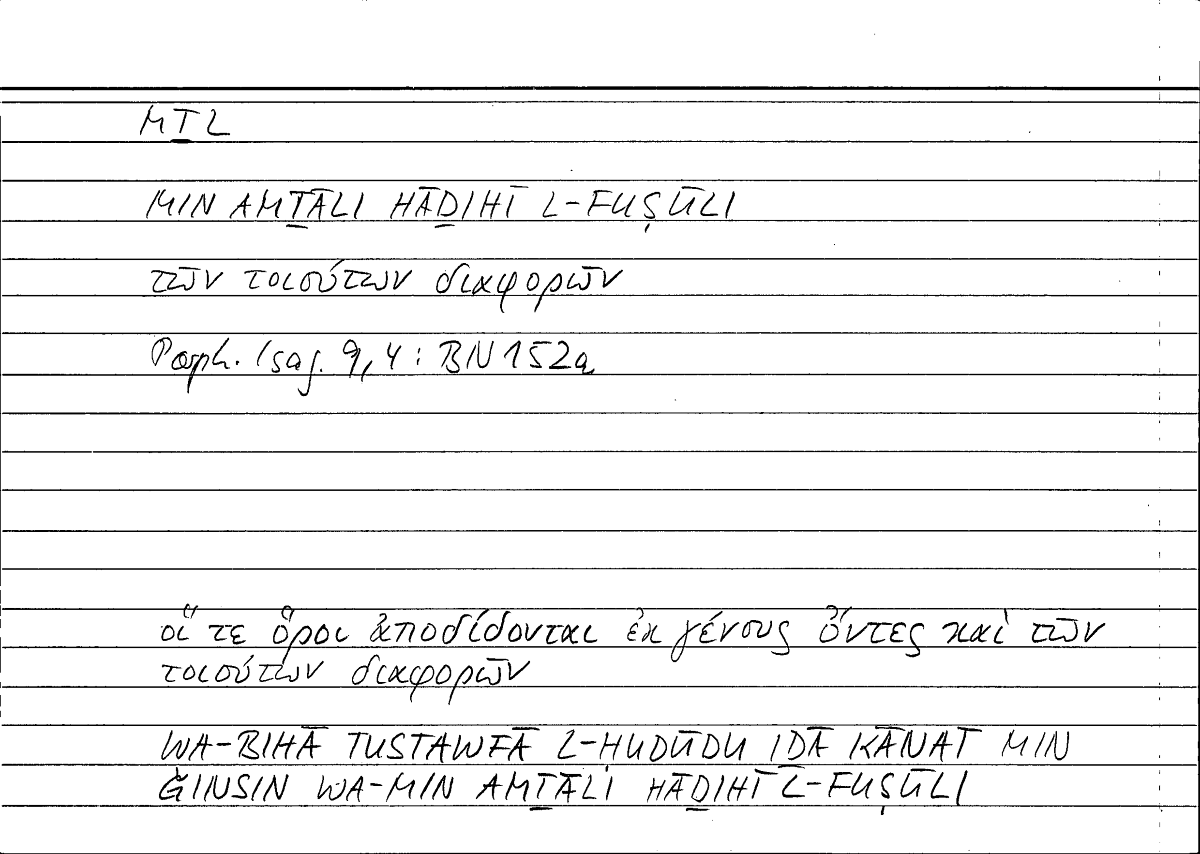 MṮL
MIN AMṮĀLI HĀḎIHĪ L-FUṢŪLI
τῶν τοιούτων διαφορῶν
Porph. Isag. 9,4: BN 152a
οἵ τε ὅροι ἀποδίδονται ἐκ γένους ὄντες καὶ τῶν
τοιούτων διαφορῶν
WA-BIHĀ TUSTAWFĀ L-HUDŪDU IḎĀ KĀNAT MIN
ǦINSIN WA-MIN AMṮĀLI HĀḎIHĪ L-FUṢŪLI